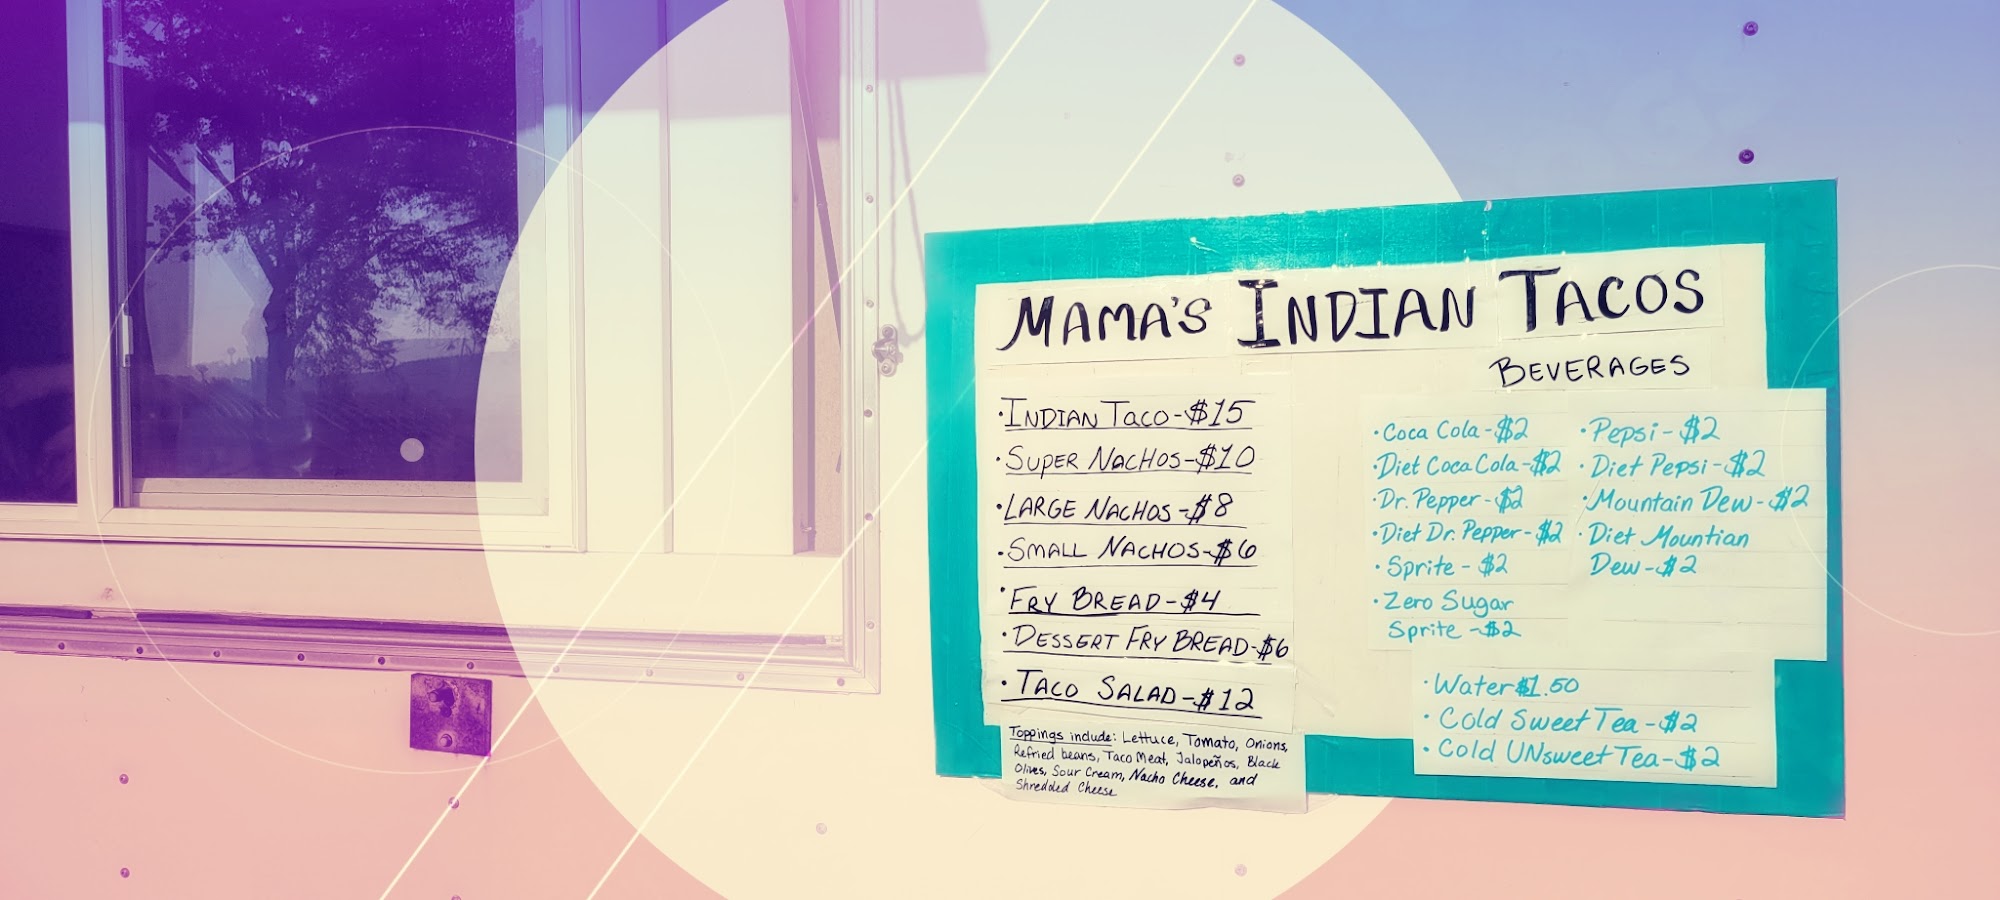 MAMA'S INDIAN TACOS
• INDIAN TACO - $15
• SUPER NACHOS - $10
• LARGE NACHOS - $8
• SMALL NACHOS - $6
• FRY BREAD - $4
• DESSERT FRY BREAD - $6
• TACO SALAD - $12
Toppings include: Lettuce, Tomato, Onions,
Refried beans, Taco Meat, Jalopeños, Black
Olives, Sour Cream, Nacho Cheese, and
Shredded Cheese
BEVERAGES
• Coca Cola - $2
• Diet Coca Cola - $2
• Dr. Pepper - $2
• Diet Dr. Pepper - $2
• Sprite - $2
• Zero Sugar
Sprite - $2
• Pepsi - $2
• Diet Pepsi - $2
• Mountain Dew - $2
• Diet Mountian
Dew - $2
• Water $1.50
• Cold Sweet Tea - $2
• Cold UNsweet Tea - $2